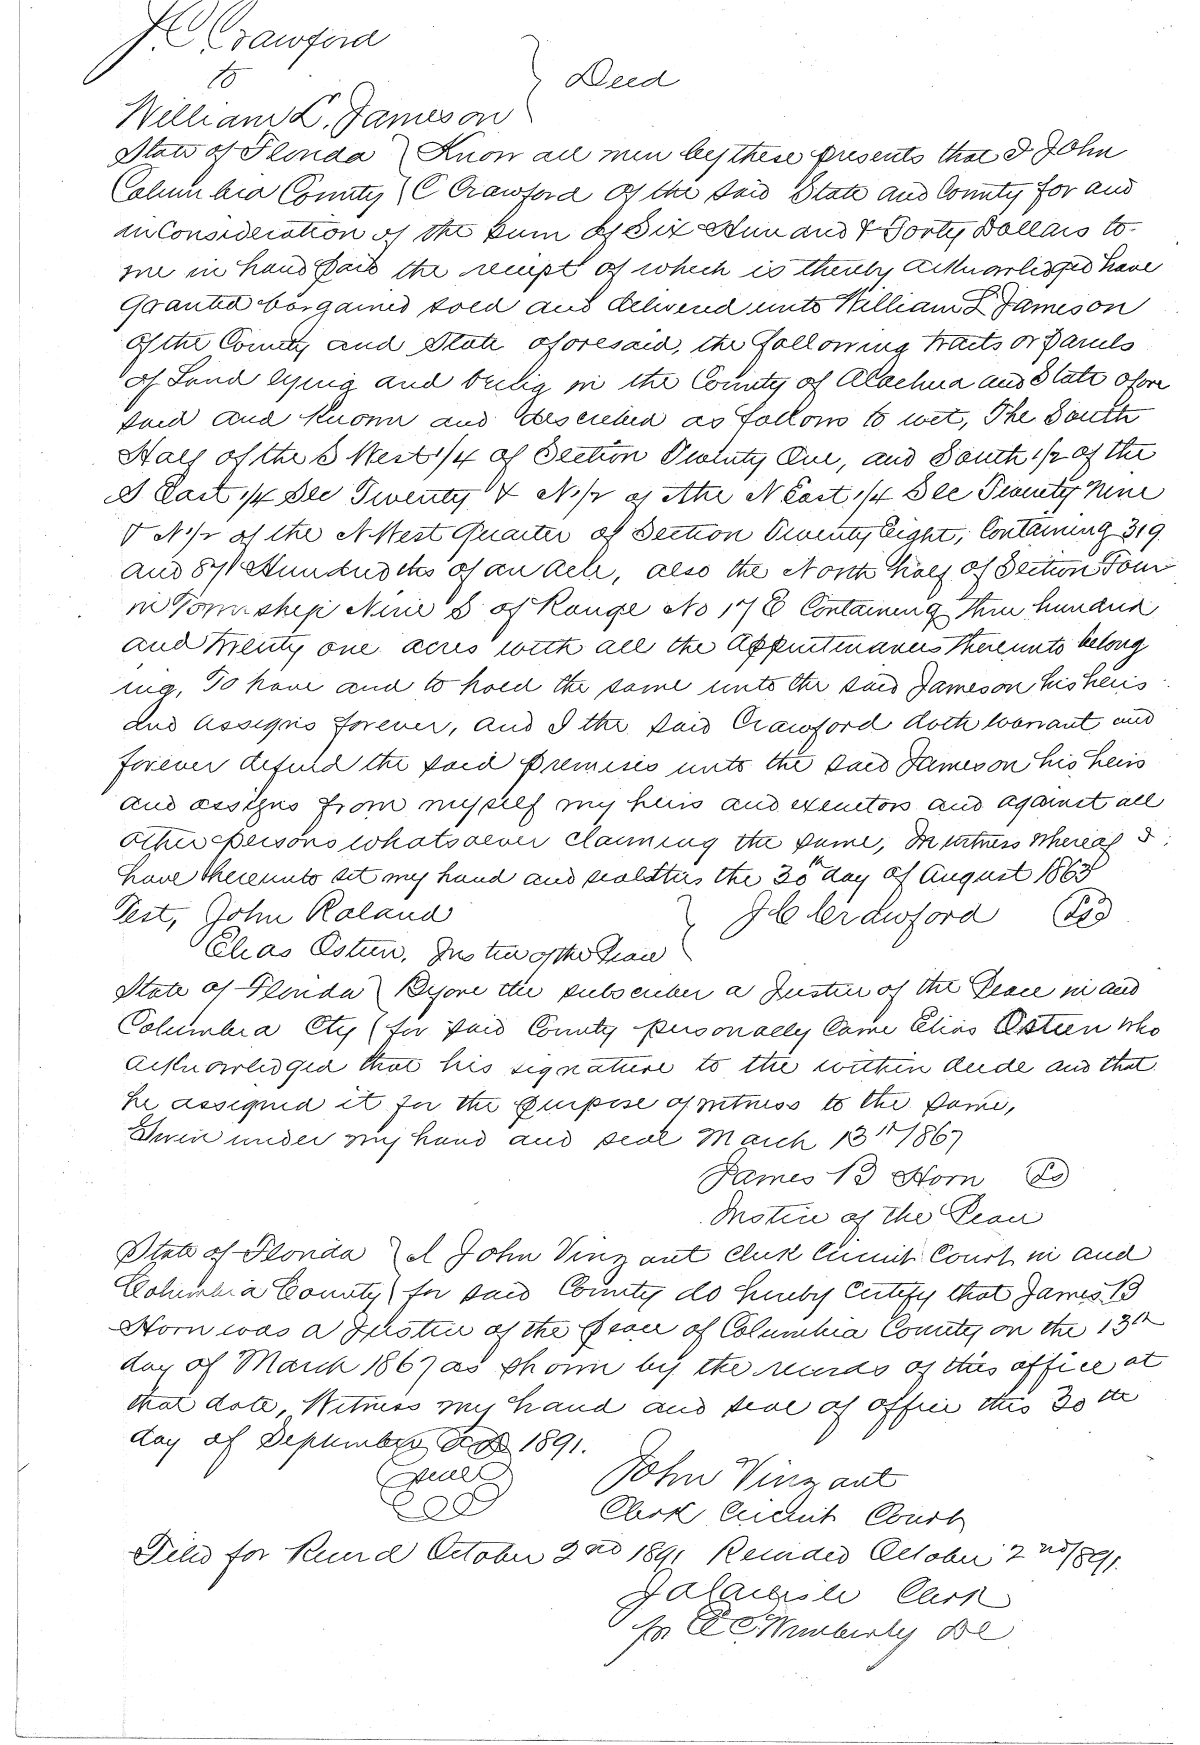 J. C. Crawford
to
Deed
William L. Jameson
State of Florida } Know all men by these presents that I John
Columbia County } C Crawford of the said State and County for and
in Consideration of the sum of Six Hunand & Forty Dollars to
me in hand paid the reciept of which is thereby acknowledged have
granted bargained sold and delivered unto William L Jameson
of the County and State aforesaid, the following tracts or parcels
of Land lying and being in the County of Alachua and State afore
said and known and described as follows to wit, The South
Half of the S West 1/4 of Section Twenty One, and South 1/2 of the
S East 1/4 Sec Twenty & N 1/2 of the N East 1/4 Sec Twenty Nine
& N 1/2 of the N West Quarter of Section Twenty Eight, Containing 319
and 87 Hundredths of an Acre, also the North half of Section Four
in Township Nine S of Range No 17 E Containing three hundred
and twenty one acres with all the appurtenances thereunto belong
ing, To have and to hold the same unto the said Jameson his heirs
and assigns forever, and I the said Crawford doth warrant and
forever defend the said premises unto the said Jameson his heirs
and assigns from myself my heirs and executors and against all
other persons whatsoever claiming the same, In witness whereof I
have hereunto set my hand and seal this the 30th day of August 1863
Test, John Roland } J C Crawford (LS)
Elias Osteen, Justice of the Peace
State of Florida } Before the subscriber a Justice of the Peace in and
Columbia Cty } for said County personally came Elias Osteen who
acknowledged that his signature to the within deede and that
he assigned it for the purpose of witness to the same,
Given under my hand and seal March 13th 1867
James B Horn (LS)
Justice of the Peace
State of Florida } I John Vinzant Clerk Circuit Court in and
Columbia County } for said County do hereby Certify that James B
Horn was a Justice of the peace of Columbia County on the 13th
day of March 1867 as shown by the records of this office at
that date, Witness my hand and seal of office this 30th
day of September AD 1891.
seal John Vinzant
Clerk Circuit Court
Filed for Record October 2nd 1891 Recorded October 2nd 1891.
Clerk
pr Wimberly DC